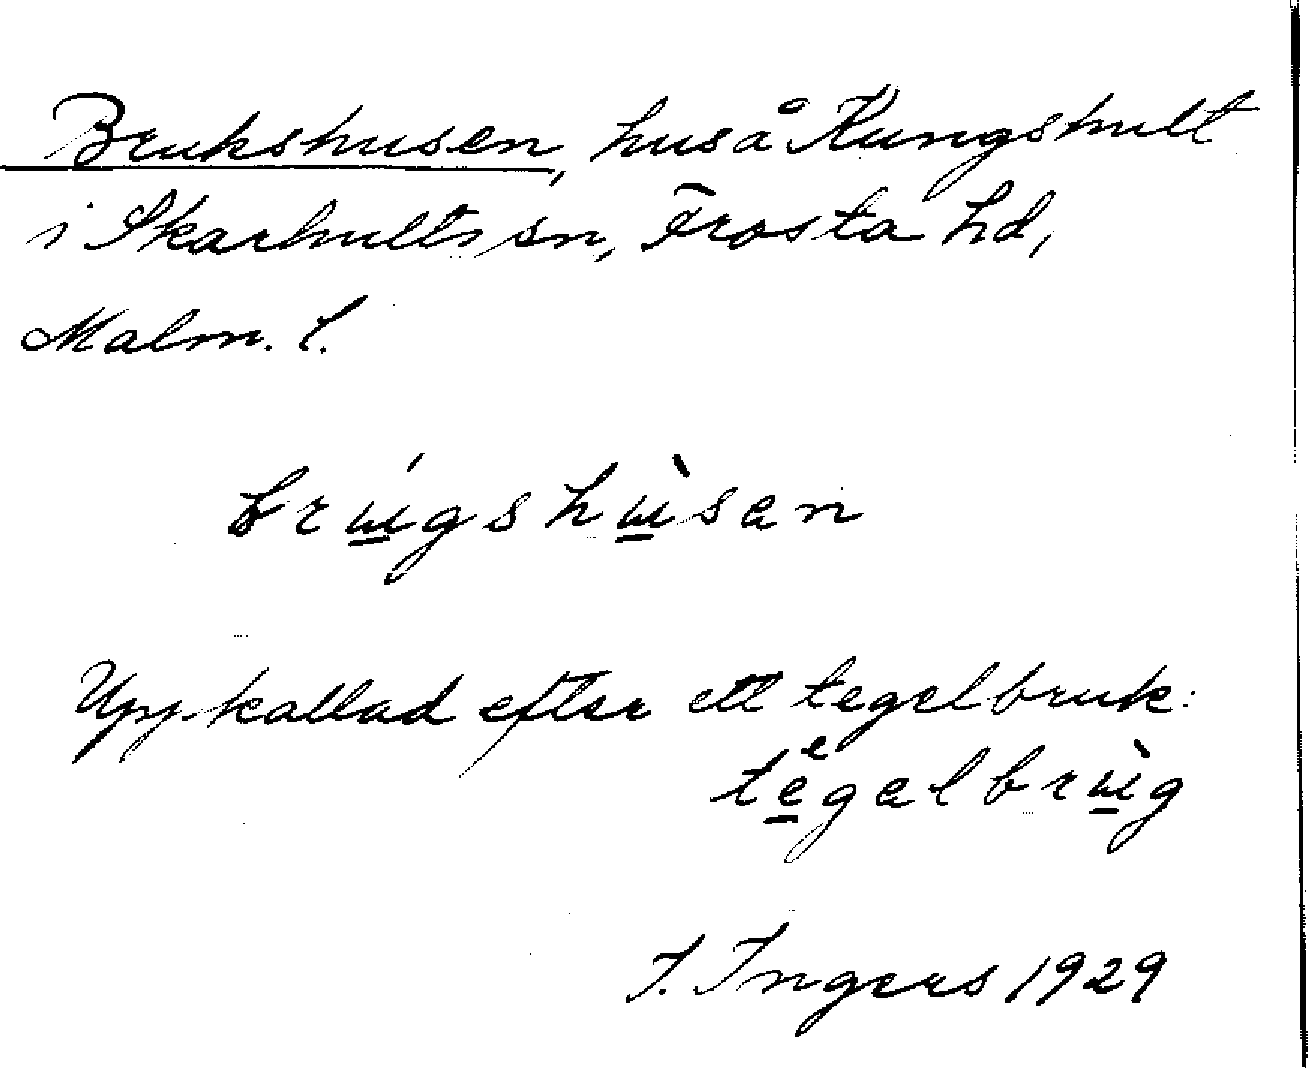 Brukshusen, hus å Kungshult
i Skarhults sn, Frosta hd,
Malm. l.
brúgshùsen
Uppkallad efter ett tegelbruk:
tegelbrùg
I. Ingers 1929